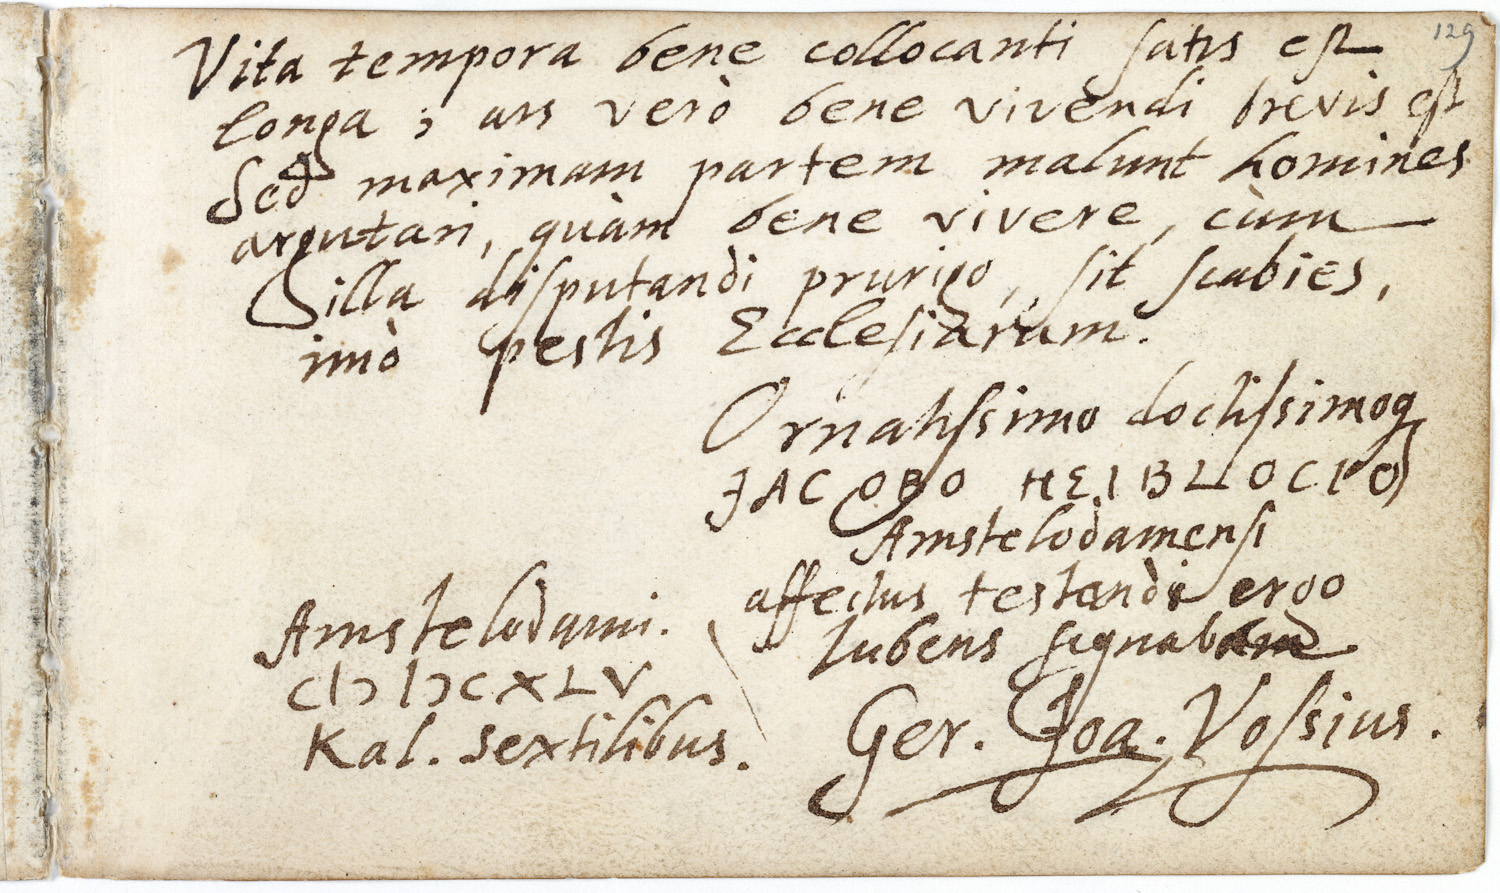 129
Vita tempora bene collocanti satis est
longa; ars verò bene vivendi brevis est
Sed maximam partem malunt homines
argutari, quàm bene vivere, cùm
illa disputandi prurigo, sit scabies,
imò pestis Ecclesiarum.
Ornatissimo doctissimoq
JACOBO HEIBLOCIO
Amstelodamensi
affectus testandi ergo
lubens signabam
Ger. Joa. Vossius.
Amstelodami.
CIↃ IↃCXLV
Kal. Sextilibus.